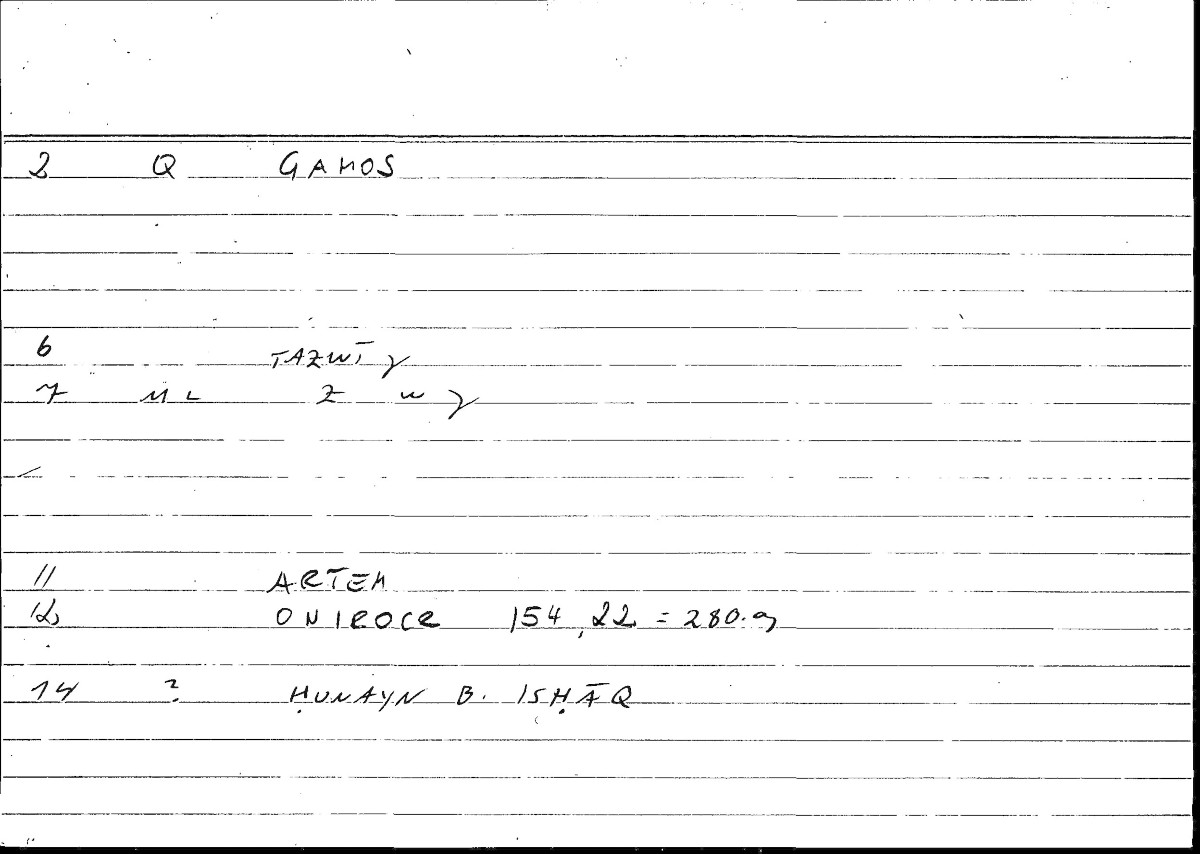 2 Q GAMOS
6 TAZWĪǧ
7 ML Z w ǧ
11 ARTEM
12 ONIROCR 154,22 = 280.9
14 ? ḤUNAYN B. ISḤĀQ